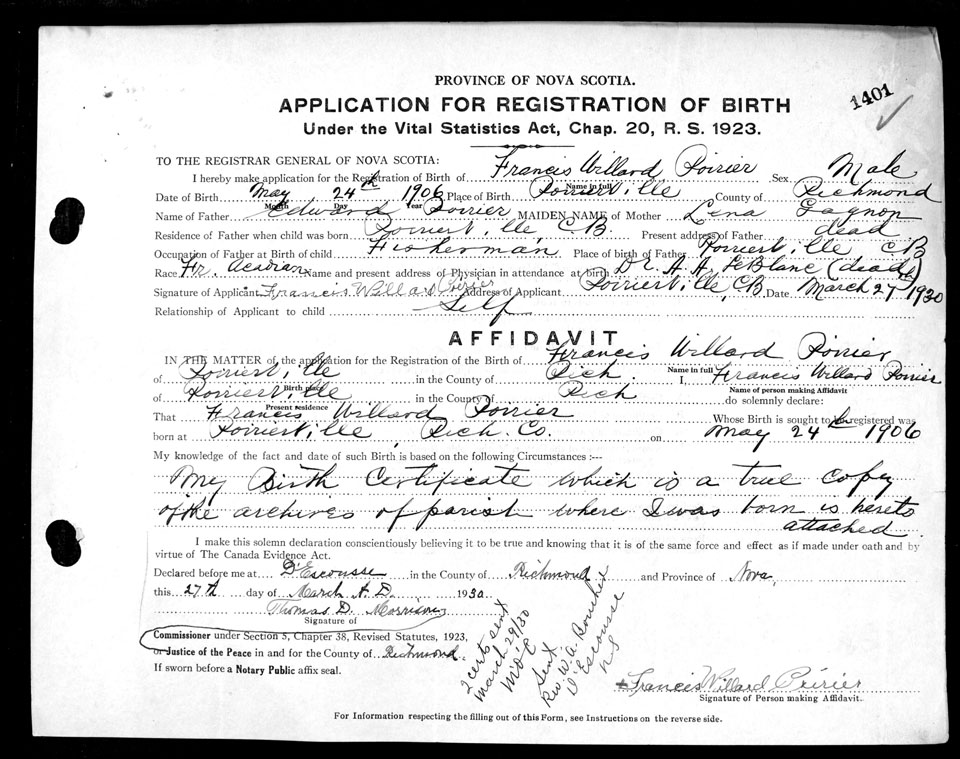 PROVINCE OF NOVA SCOTIA.
1401
APPLICATION FOR REGISTRATION OF BIRTH
Under the Vital Statistics Act, Chap. 20, R. S. 1923.
TO THE REGISTRAR GENERAL OF NOVA SCOTIA:
I hereby make application for the Registration of Birth of Francis Willard Poirier Sex Male
Name in full
Date of Birth May 24th 1906 Place of Birth Poirierville County of Richmond
Month Day Year
Name of Father Edward Poirier MAIDEN NAME of Mother Lena Gagnon
Residence of Father when child was born Poirierville CB Present address of Father dead
Occupation of Father at Birth of child Fisherman Place of birth of Father Poirierville CB
Race Fr. Acadian Name and present address of Physician in attendance at birth Dr. A. A. LeBlanc (dead)
Signature of Applicant Francis Willard Poirier Address of Applicant Poirierville, CB. Date March 27 1930
Relationship of Applicant to child Self
AFFIDAVIT
IN THE MATTER of the application for the Registration of the Birth of Francis Willard Poirier
Name in full
of Poirierville in the County of Rich. I, Francis Willard Poirier
Birth place Name of person making Affidavit
of Poirierville in the County of Rich do solemnly declare:
Present residence
That Francis Willard Poirier Whose Birth is sought to be registered was
born at Poirierville, Rich. Co. on May 24th 1906
My knowledge of the fact and date of such Birth is based on the following Circumstances :--
My Birth Certificate which is a true copy
of the archives of parish where I was born is hereto
attached
I make this solemn declaration conscientiously believing it to be true and knowing that it is of the same force and effect as if made under oath and by
virtue of The Canada Evidence Act.
Declared before me at D'Escousse in the County of Richmond and Province of Nova,
this 27th day of March A.D. 1930
Thomas D. Morrison
Signature of
Commissioner under Section 5, Chapter 38, Revised Statutes, 1923,
or Justice of the Peace in and for the County of Richmond.
If sworn before a Notary Public affix seal.
2 certs sent
March 29/30
Sent
Rev. W. A. Rouchix
D'Escousse
N.S.
Francis Willard Poirier
Signature of Person making Affidavit.
For Information respecting the filling out of this Form, see Instructions on the reverse side.